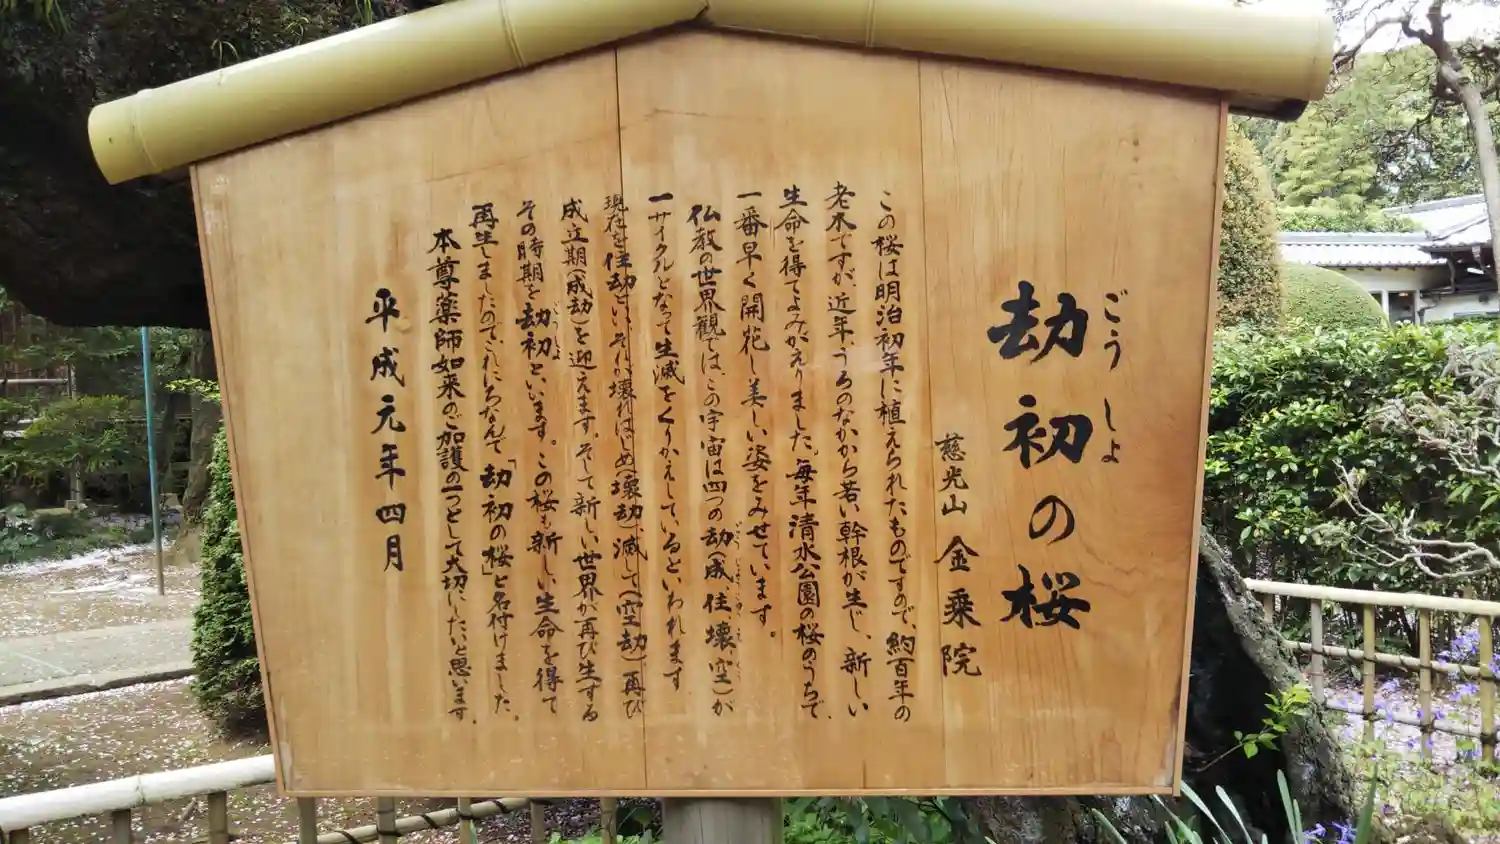 劫初の桜
ごうしよ
慈光山 金乗院
この桜は明治初年に植えられたものですので、約百年の
老木ですが、近年、うろのなかから若い幹根が生じ、新しい
生命を得てよみがえりました。毎年清水公園の桜のうちで、
一番早く開花し美しい姿をみせています。
仏教の世界観では、この宇宙は四つの劫(成住壊空)が
ごう じょうじゅうえくう
一サイクルとなって生滅をくりかえしているといわれます
現在を住劫といい、それが壊れはじめ(壊劫)、滅して(空劫)、再び
成立期(成劫)を迎えます。そして新しい世界が再び生する
その時期を劫初といいます。この桜も新しい生命を得て
ごうしよ
再生しましたのでこれにちなんで「劫初の桜」と名付けました。
本尊薬師如来のご加護の一つとして大切にしたいと思います。
平成元年四月